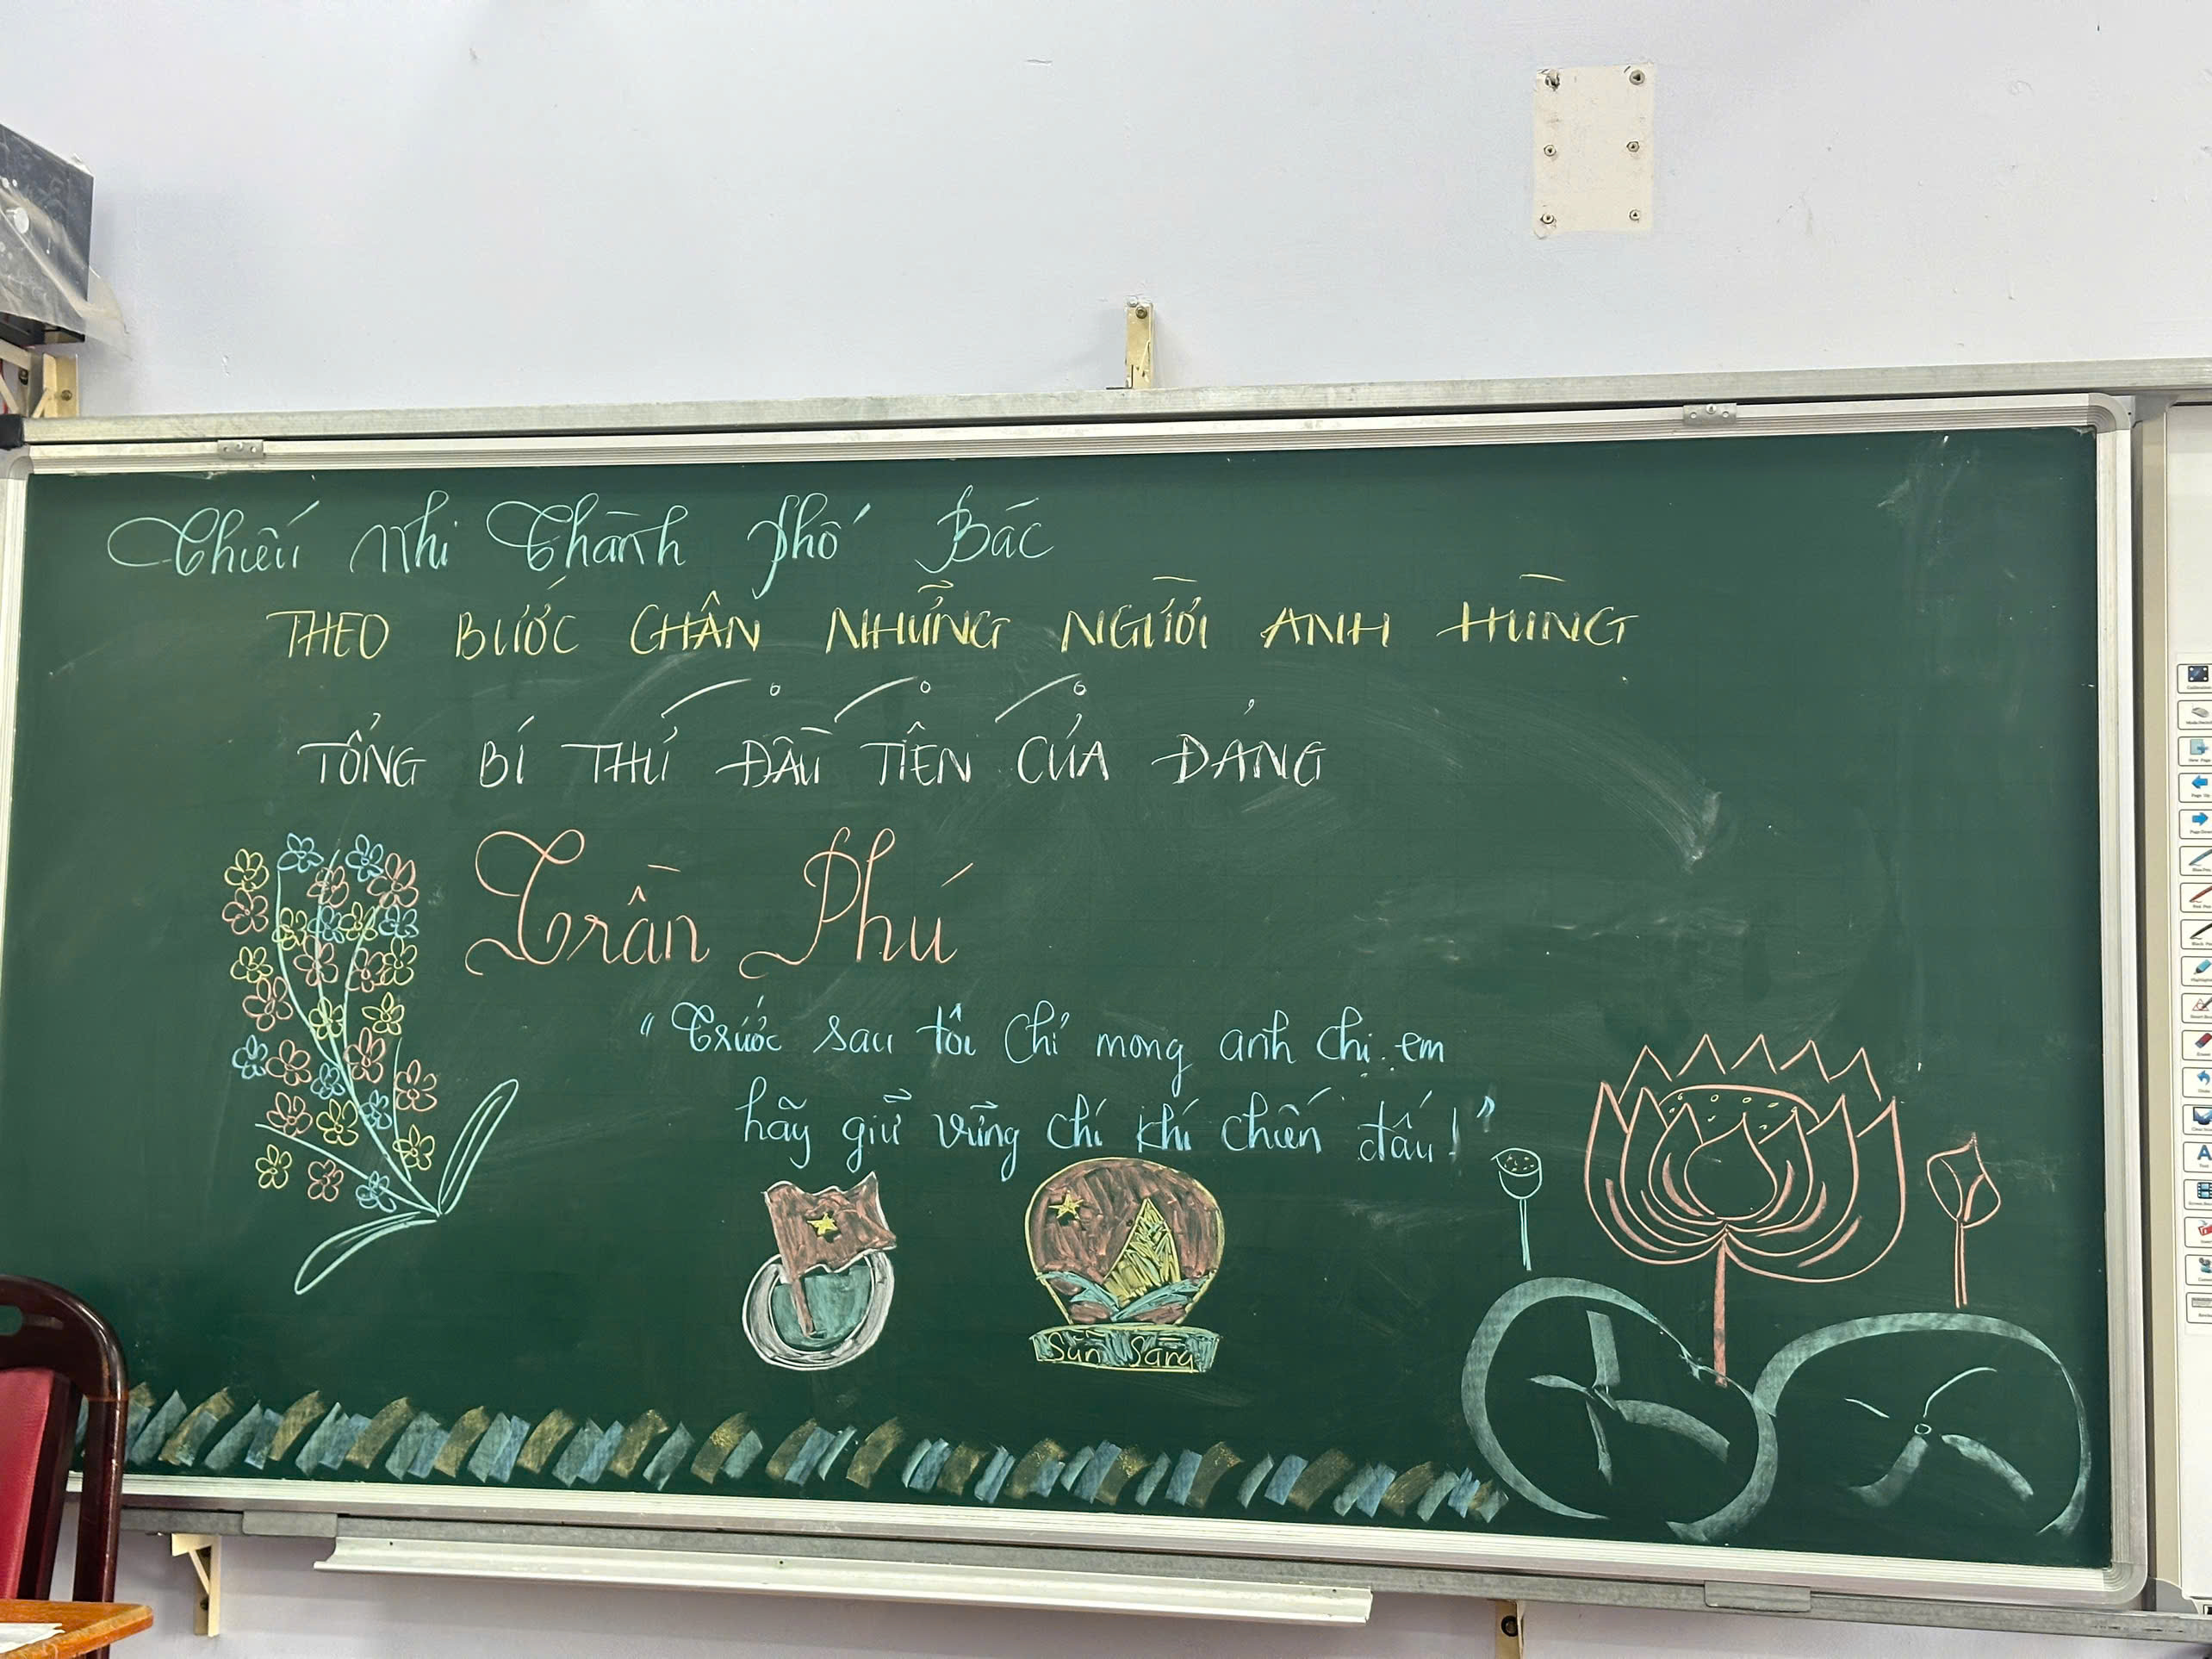 Thiếu nhi Thành phố Bác
THEO BƯỚC CHÂN NHỮNG NGƯỜI ANH HÙNG
TỔNG BÍ THƯ ĐẦU TIÊN CỦA ĐẢNG
Trần Phú
"Trước sau tôi chỉ mong anh chị em
hãy giữ vững chí khí chiến đấu!"
Sẵn Sàng